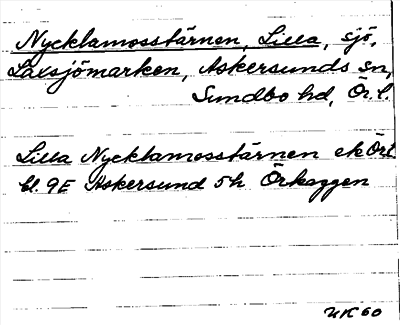 Nycklamosstärnen, Lilla, sjö,
Laxsjömarken, Askersunds sn,
Sundbo hd, Ör. l.
Lilla Nycklamosstärnen ek Ört
bl. 9E Askersund 5h Örkaggen